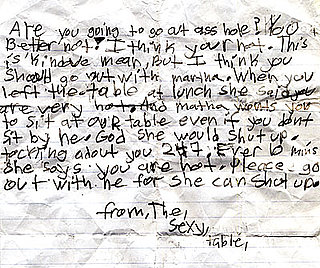 Are you going to go out ass hole? You
Better not. I think your hot. This
is kindove mean, But I think you
should go out with martha. When you
left the table at lunch she said you
are very hot. And matha wants you
to sit at our table even if you dont
sit by he. God she would shut up.
tocking about you 24-7. Ever 10 mins
she says you are hot. Please go
out with he for she can shut up.
from, The,
Sexy,
table,